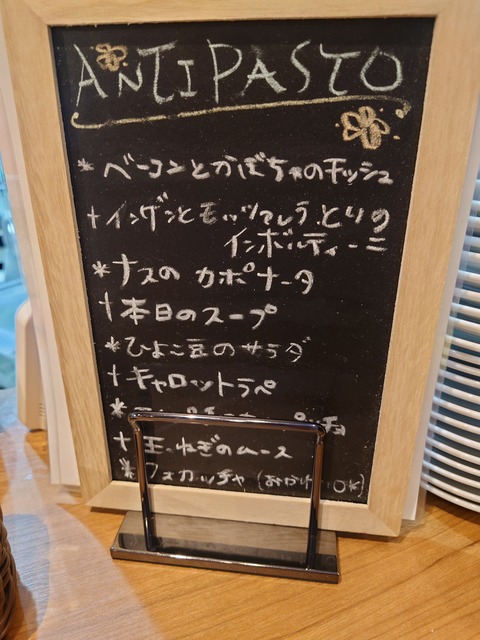 ANTIPASTO
* ベーコンとかぼちゃのキッシュ
+ インゲンとモッツァレラ、とりの
インボルティーニ
* ナスの カポナータ
+ 本日のスープ
* ひよこ豆のサラダ
+ キャロットラペ
*
+ 玉ねぎのムース
* フォカッチャ (おかわりOK)